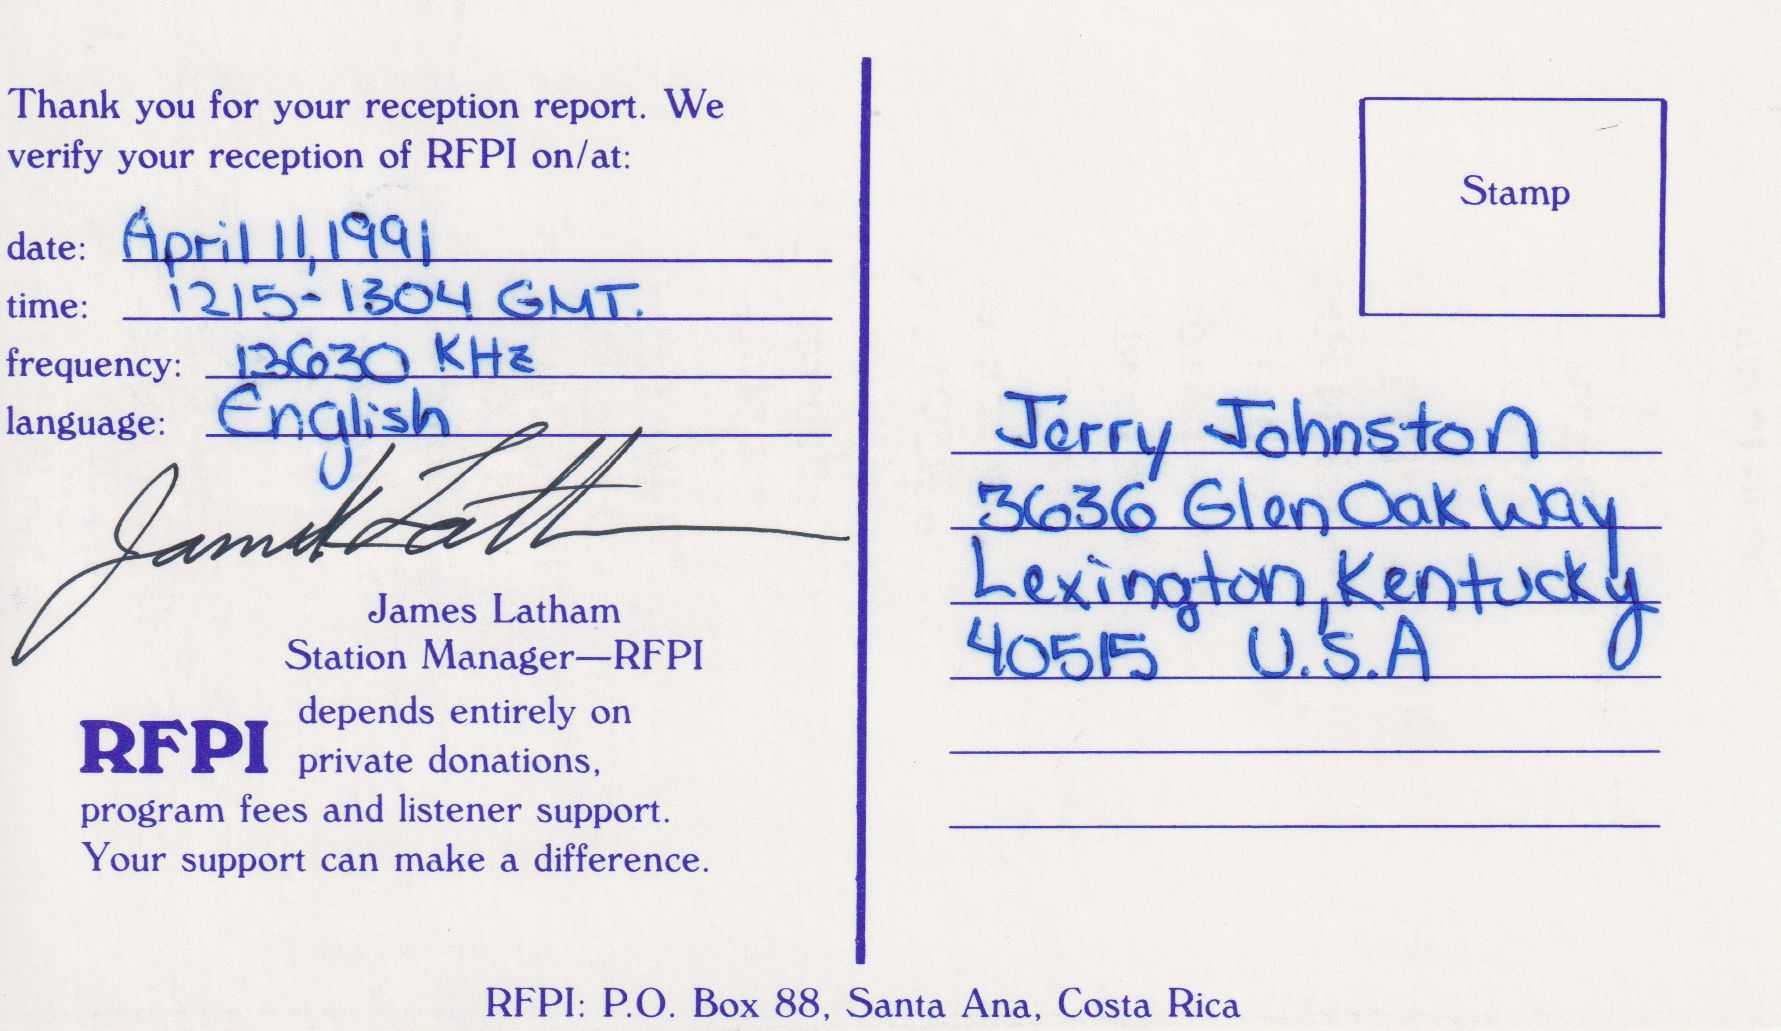 Thank you for your reception report. We
verify your reception of RFPI on/at:
date: April 11, 1991
time: 1215-1304 GMT.
frequency: 13630 KHz
language: English
James Latham
James Latham
Station Manager—RFPI
RFPI depends entirely on
private donations,
program fees and listener support.
Your support can make a difference.
Stamp
Jerry Johnston
3636 Glen Oak Way
Lexington, Kentucky
40515 U.S.A
RFPI: P.O. Box 88, Santa Ana, Costa Rica